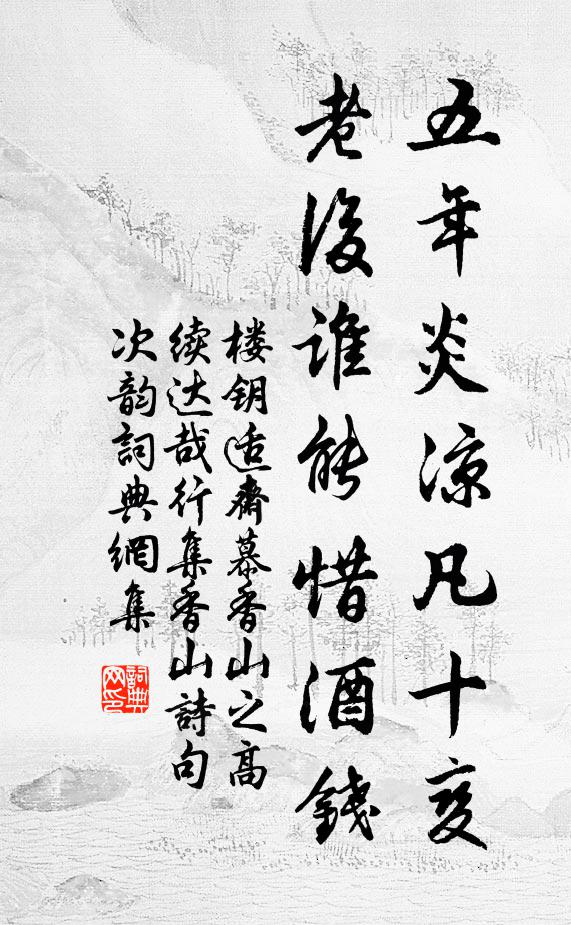 五年炎凉凡十变
老後谁能惜酒錢
楼钥适齋慕香山之高
续达哉行集香山詩句
次韵詞典網集
詞典网印